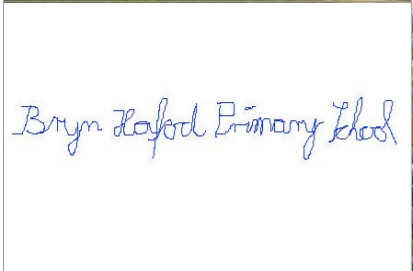 Bryn Hafod Primary School